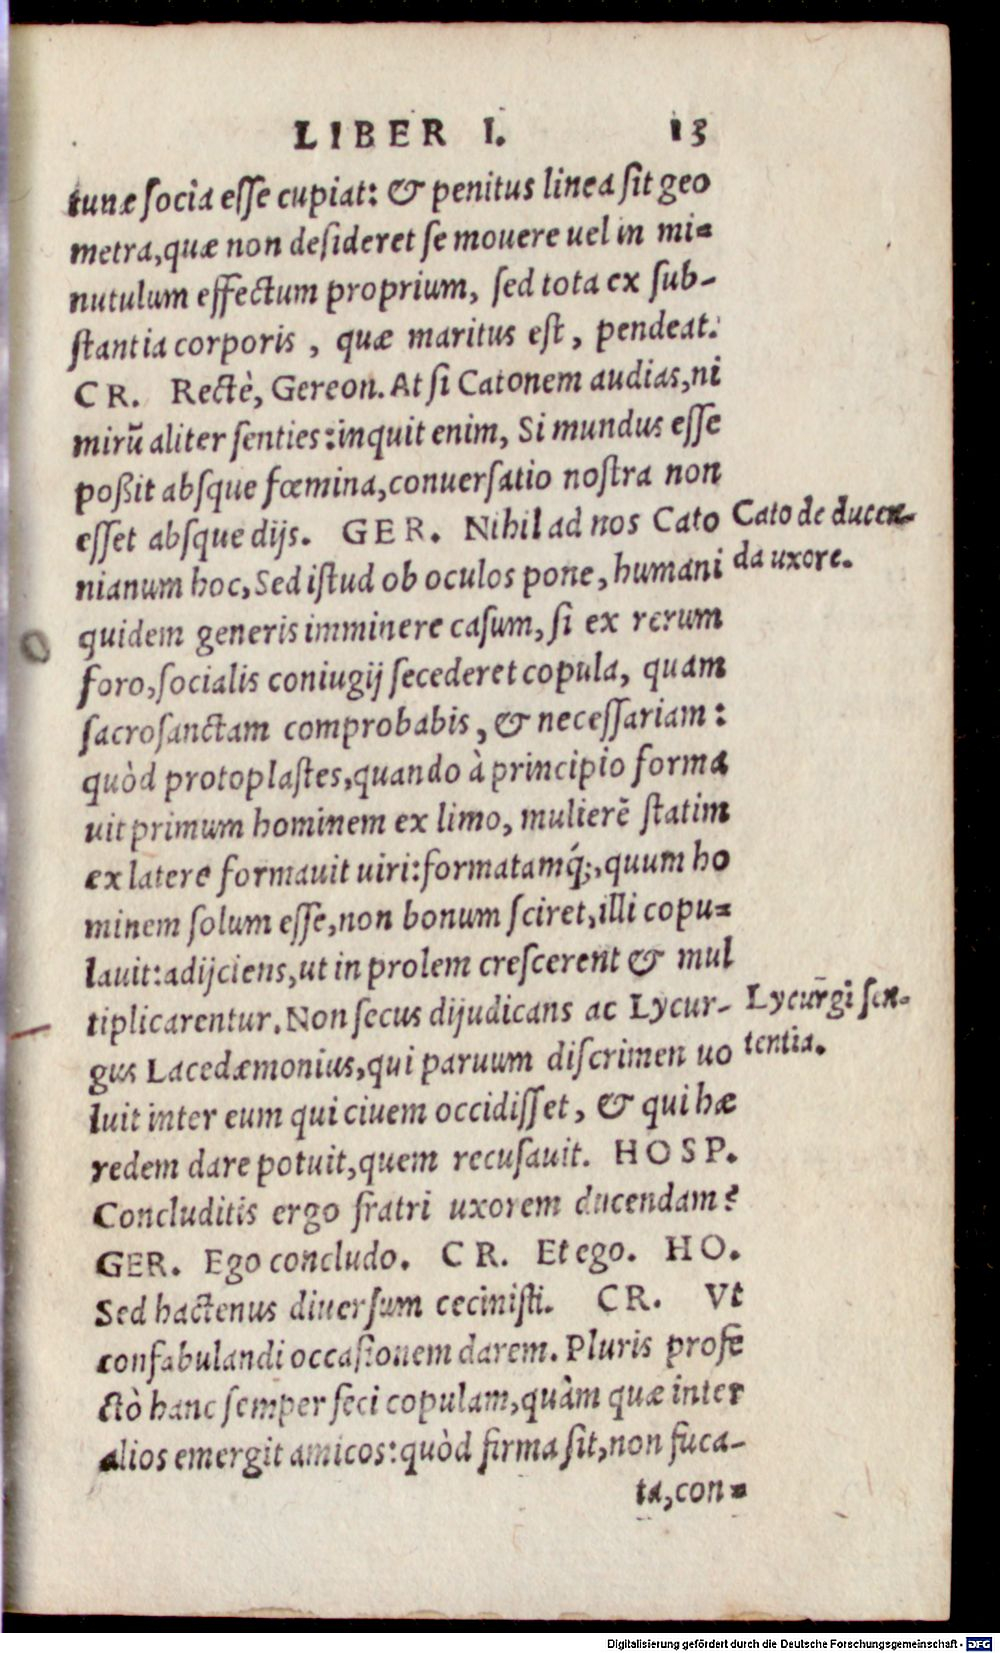 LIBER I. 13
tunæ socia esse cupiat: & penitus linea sit geo
metra, quæ non desideret se mouere uel in mi=
nutulum effectum proprium, sed tota ex sub-
stantia corporis, quæ maritus est, pendeat.
CR. Rectè, Gereon. At si Catonem audias, ni
mirū aliter senties: inquit enim, Si mundus esse
poßit absque fœmina, conuersatio nostra non
esset absque dijs. GER. Nihil ad nos Cato
Cato de ducen-
da uxore.
nianum hoc, Sed istud ob oculos pone, humani
quidem generis imminere casum, si ex rerum
foro, socialis coniugij secederet copula, quam
sacrosanctam comprobabis, & necessariam:
quòd protoplastes, quando à principio forma
uit primum hominem ex limo, mulierē statim
ex latere formauit uiri: formatamq́;, quum ho
minem solum esse, non bonum sciret, illi copu=
lauit: adijciens, ut in prolem crescerent & mul
tiplicarentur. Non secus dijudicans ac Lycur-
Lycurgi sen-
tentia.
gus Lacedæmonius, qui paruum discrimen uo
luit inter eum qui ciuem occidisset, & qui hæ
redem dare potuit, quem recusauit. HOSP.
Concluditis ergo fratri uxorem ducendam?
GER. Ego concludo. CR. Et ego. HO.
Sed hactenus diuersum cecinisti. CR. Vt
confabulandi occasionem darem. Pluris profe
ctò hanc semper feci copulam, quàm quæ inter
alios emergit amicos: quòd firma sit, non fuca-
ta, con=
Digitalisierung gefördert durch die Deutsche Forschungsgemeinschaft - DFG